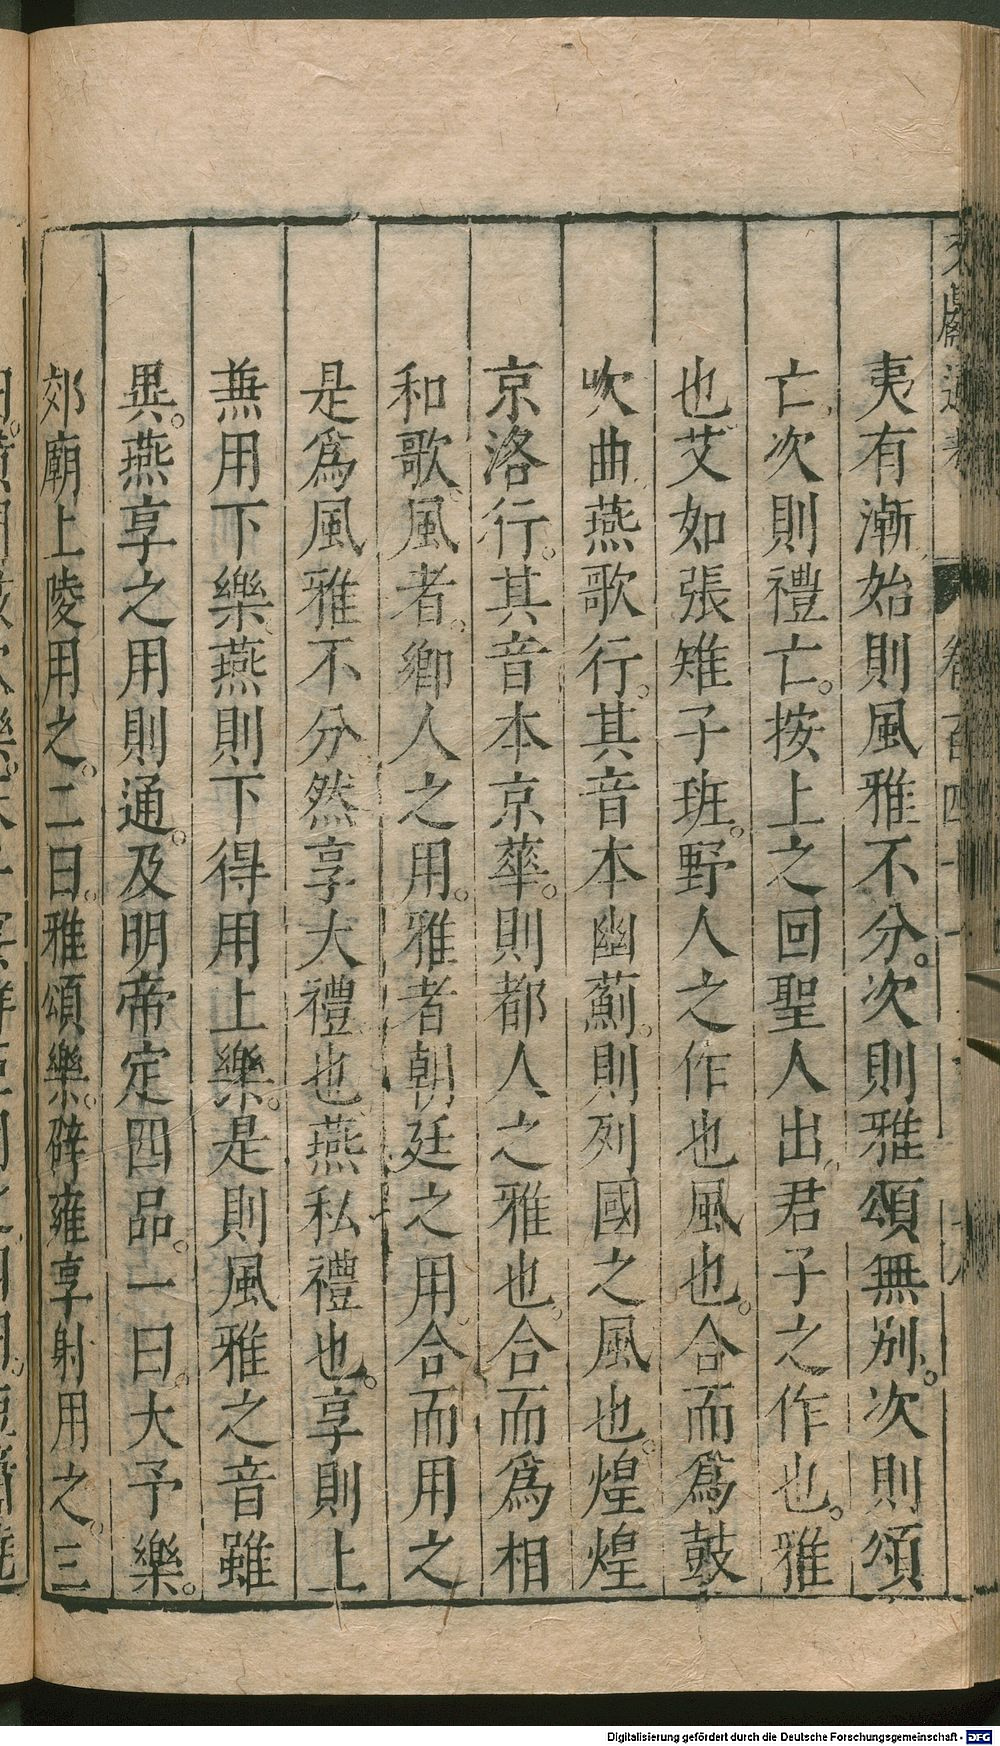 夷有漸始則風雅不分。次則雅頌無別。次則頌
亡次則禮亡。按上之回聖人出君子之作也。雅
也艾如張雉子班。野人之作也風也。合而爲鼓
吹曲燕歌行。其音本幽薊。則列國之風也。煌煌
京洛行。其音本京華。則都人之雅也。合而爲相
和歌。風者。鄉人之用。雅者朝廷之用。合而用之
是爲風雅不分然享大禮也燕私禮也。享則上
兼用下樂燕則下得用上樂。是則風雅之音雖
異。燕享之用則通。及明帝定四品。一曰。大予樂。
郊廟上陵用之。二曰。雅頌樂。辟雍享射用之。三
Digitalisierung gefördert durch die Deutsche Forschungsgemeinschaft - DFG